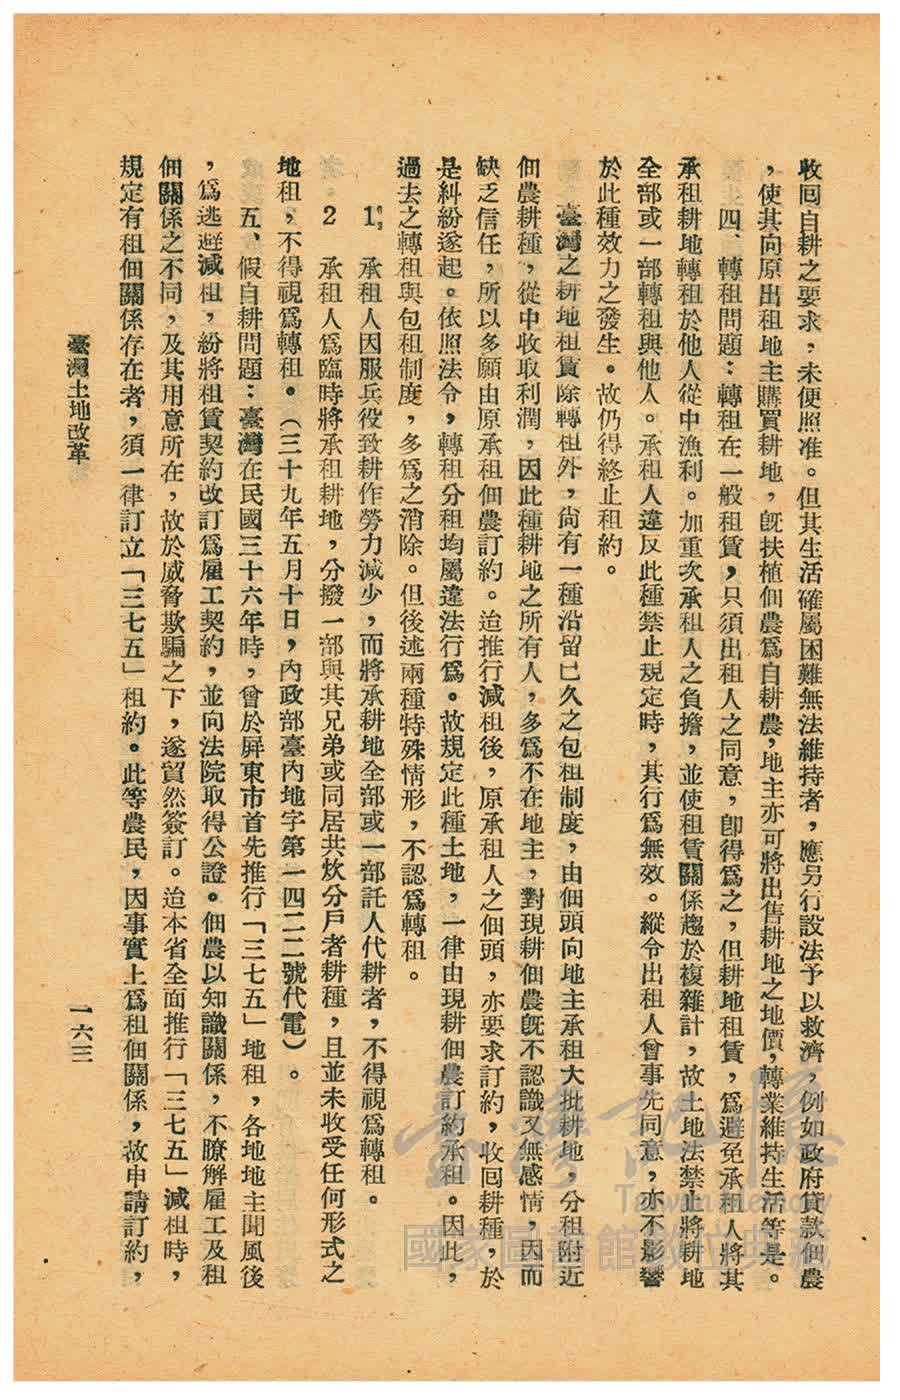 收回自耕之要求，未便照准。但其生活確屬困難無法維持者，應另行設法予以救濟，例如政府貸款佃農
，使其向原出租地主購買耕地，旣扶植佃農爲自耕農，地主亦可將出售耕地之地價，轉業維持生活等是。
四、轉租問題：轉租在一般租賃，只須出租人之同意，卽得爲之，但耕地租賃，爲避免承租人將其
承租耕地轉租於他人從中漁利。加重次承租人之負擔，並使租賃關係趨於複雜計，故土地法禁止將耕地
全部或一部轉租與他人。承租人違反此種禁止規定時，其行爲無效。縱令出租人曾事先同意，亦不影響
於此種效力之發生。故仍得終止租約。
臺灣之耕地租賃除轉租外，尙有一種沿留已久之包租制度，由佃頭向地主承租大批耕地，分租附近
佃農耕種，從中收取利潤，因此種耕地之所有人，多爲不在地主，對現耕佃農旣不認識又無感情，因而
缺乏信任，所以多願由原承租佃農訂約。迨推行減租後，原承租人之佃頭，亦要求訂約，收回耕種，於
是糾紛遂起。依照法令，轉租分租均屬違法行爲。故規定此種土地，一律由現耕佃農訂約承租。因此，
過去之轉租與包租制度，多爲之消除。但後述兩種特殊情形，不認爲轉租。
1　承租人因服兵役致耕作勞力減少，而將承耕地全部或一部託人代耕者，不得視爲轉租。
2　承租人爲臨時將承租耕地，分撥一部與其兄弟或同居共炊分戶者耕種，且並未收受任何形式之
地租，不得視爲轉租。（三十九年五月十日，內政部臺內地字第一四二二號代電）。
五、假自耕問題：臺灣在民國三十六年時，曾於屛東市首先推行「三七五」地租，各地地主聞風後
，爲逃避減租，紛將租賃契約改訂爲雇工契約，並向法院取得公證。佃農以知識關係，不瞭解雇工及租
佃關係之不同，及其用意所在，故於威脅欺騙之下，遂貿然簽訂。迨本省全面推行「三七五」減租時，
規定有租佃關係存在者，須一律訂立「三七五」租約。此等農民，因事實上爲租佃關係，故申請訂約，
臺灣土地改革
一六三
臺灣記憶
Taiwan Memory
國家圖書館數位典藏